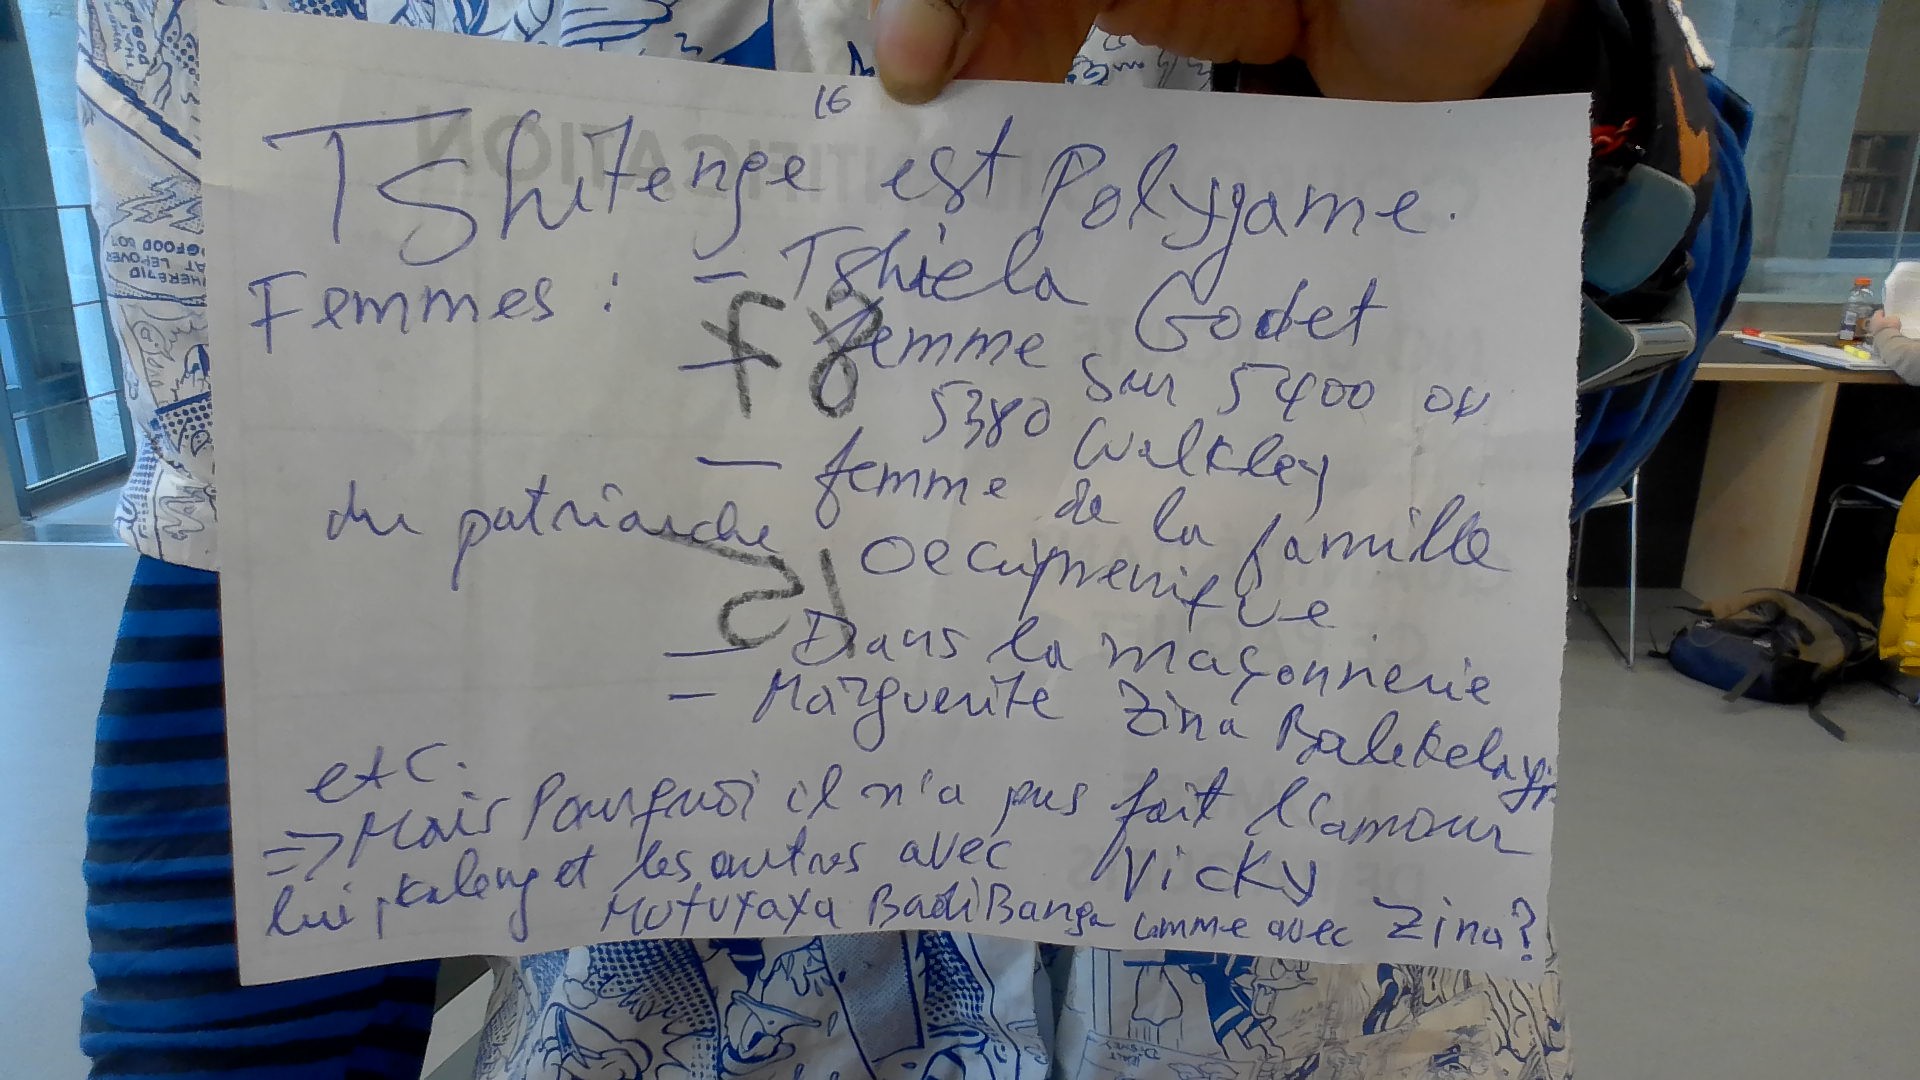 16
Tshitenge est Polygame.
Femmes : - Tshiela
- femme Godet
sur 5400 ou
5380 Walkley
- femme de la famille
du patriarche oecuménique
- Dans la maçonnerie
- Marguerite Zina Balekelayi
etc.
=> Mais Pourquoi il n'a pas fait l'amour
lui, Kaleng et les autres avec Vicky
Mutuyaya BadiBanga comme avec Zina?